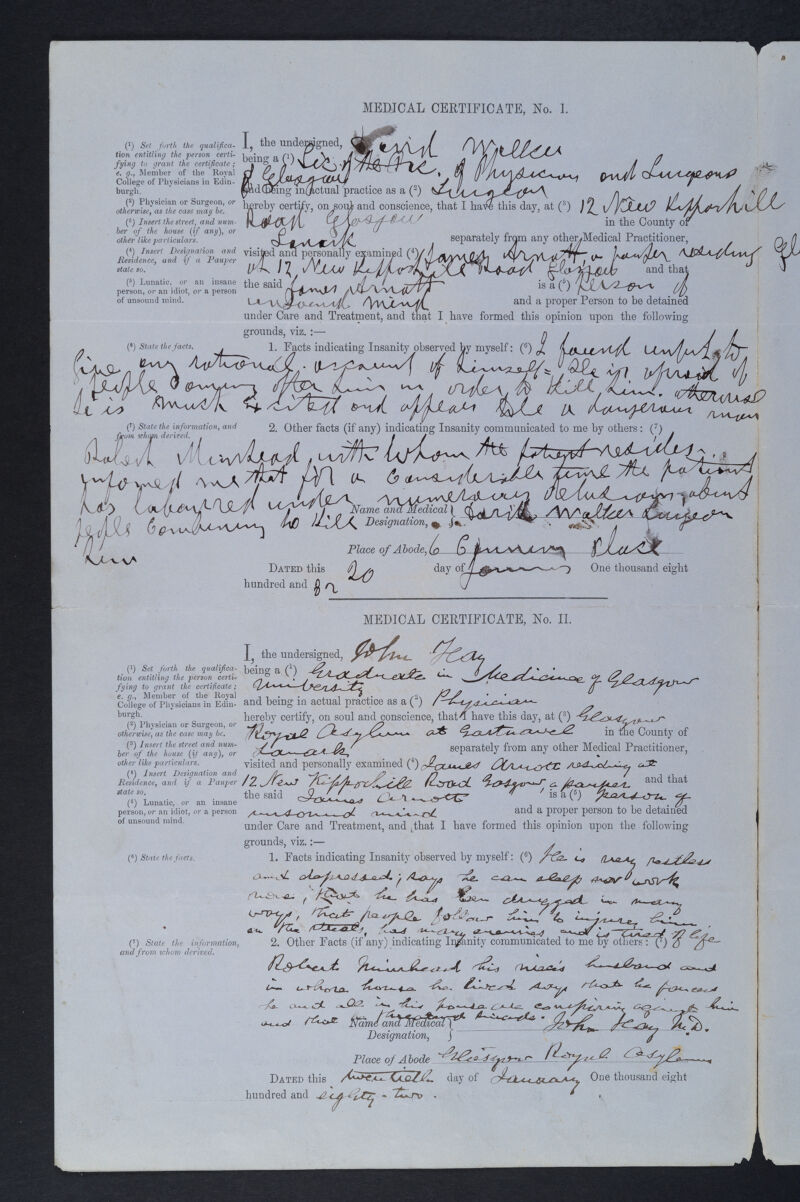 MEDICAL CERTIFICATE, No. I.
(1) Set forth the qualifica-
tion entitling the person certi-
fying to grant the certificate;
e. g., Member of the Royal
College of Physicians in Edin-
burgh.
(2) Physician or Surgeon, or
otherwise, as the case may be.
(3) Insert the street, and num-
ber of the house (if any), or
other like particulars.
(4) Insert Designation and
Residence, and if a Pauper
state so.
(5) Lunatic, or an insane
person, or an idiot, or a person
of unsound mind.
I, the undersigned, David Walker
being a (1) Lic. of the Fac. of Physicians and Surgeons
of Glasgow
and being in actual practice as a (2) Surgeon
hereby certify, on soul and conscience, that I have this day, at (3) 12 New Kepporhill
Road Glasgow in the County of
Lanark separately from any other Medical Practitioner,
visited and personally examined (4) James Arnott a pauper residing
at 12, New Kepporhill Road Glasgow and that
the said James Arnott is a (5) Person of
unsound mind and a proper Person to be detained
under Care and Treatment, and that I have formed this opinion upon the following
grounds, viz. :—
(6) State the facts.
1. Facts indicating Insanity observed by myself: (6) I found unfit to
Give any rational account of himself = He is afraid of
People Coming after him in order to Kill him. otherwise
He is much excited and appears to be a dangerous man
(7) State the information, and
from whom derived.
2. Other facts (if any) indicating Insanity communicated to me by others: (7)
Robert Muirhead, with whom the patient resides
informed me that for a Considerable time the patient
has laboured under numerous delusions about
people Combining to Kill
him
Name and Medical Designation, David Walker Surgeon
Place of Abode, 6 Place
DATED this 20 day of One thousand eight
hundred and 82
MEDICAL CERTIFICATE, No. II.
(1) Set forth the qualifica-
tion entitling the person certi-
fying to grant the certificate;
e. g., Member of the Royal
College of Physicians in Edin-
burgh.
(2) Physician or Surgeon, or
otherwise, as the case may be.
(3) Insert the street and num-
ber of the house (if any), or
other like particulars.
(4) Insert Designation and
Residence, and if a Pauper
state so.
(5) Lunatic, or an insane
person, or an idiot, or a person
of unsound mind.
I, the undersigned, John Hay
being a (1) Graduate in Medicine of Glasgow
University
and being in actual practice as a (2) Physician
hereby certify, on soul and conscience, that I have this day, at (3) Glasgow
Royal Asylum at Gartnavel in the County of
Lanark separately from any other Medical Practitioner,
visited and personally examined (4) James Arnott residing at
12 New Kippochill Road Glasgow, a pauper and that
the said James Arnott is a (5) person of
unsound mind and a proper person to be detained
under Care and Treatment, and that I have formed this opinion upon the following
grounds, viz. :—
(6) State the facts.
1. Facts indicating Insanity observed by myself: (6) He is very restless
and depressed; says he can sleep nor work
none; that he has been drugged in many
ways, that people follow him to injure him
on the streets, has many enemies and is tired of life
(7) State the information,
and from whom derived.
2. Other Facts (if any) indicating Insanity communicated to me by others: (7)
Robert Muirhead his niece's husband and
in whose house he lived says that he fancies
he and all in his house are conspiring against him
and that he
Name and Medical Designation, John Hay M.D.
Place of Abode Glasgow Royal Asylum
DATED this twentieth day of January One thousand eight
hundred and eighty-two.